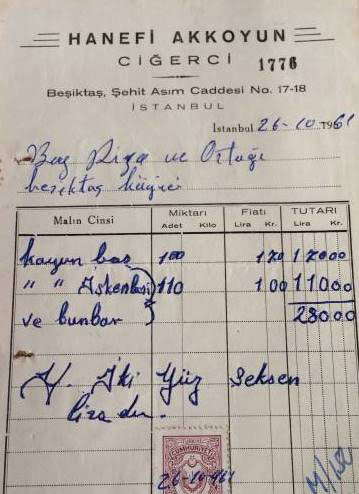 HANEFİ AKKOYUN
CİĞERCİ 1776
Beşiktaş, Şehit Asım Caddesi No. 17-18
İSTANBUL
İstanbul 26-10 1961
Bay Rıza ve Ortağı
beşektaş
Malın Cinsi Miktarı Fiatı TUTARI
Adet Kilo Lira Kr. Lira Kr.
koyun baş 100 170 17000
" " İşkenbesi 110 100 11000
ve bunbar 28000
Y. İki Yüz Seksen
liradır.
CUMHURİYETİ
26-10-961